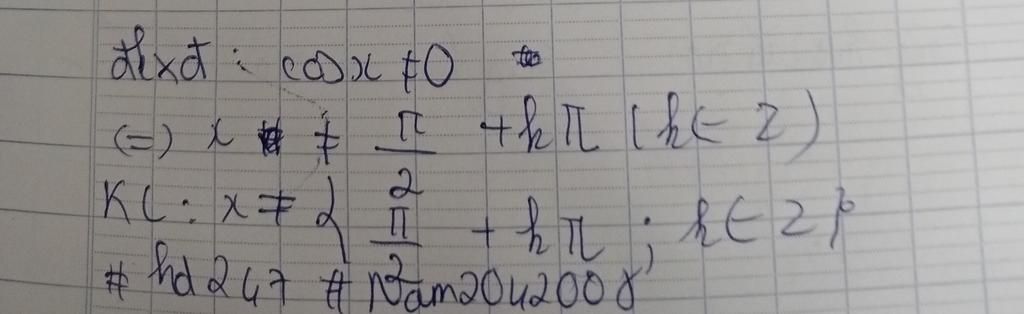 đkxđ : cosx ≠ 0
(=) x ≠ π/2 + kπ (k ∈ Z)
KL : x ≠ { π/2 + kπ ; k ∈ Z }
# hd247 # Nam20042008